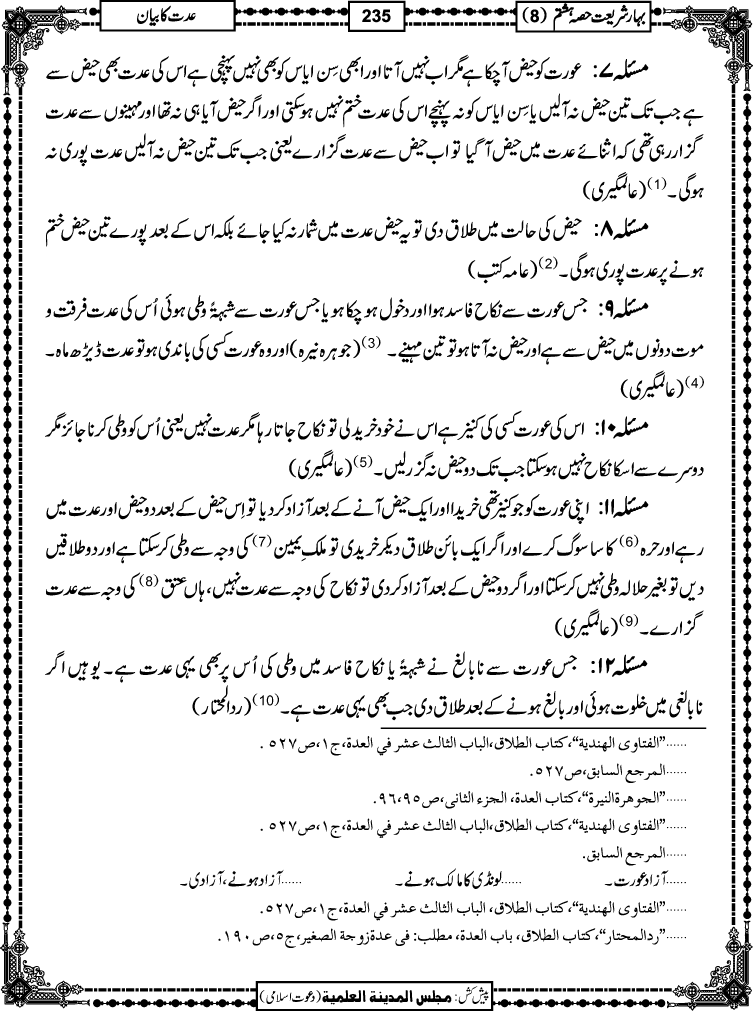 بہار شریعت حصہ ہشتم (8)
235
عدت کا بیان
مسئلہ ۷: عورت کو حیض آچکا ہے مگر اب نہیں آتا اور ابھی سِن ایاس کو بھی نہیں پہنچی ہے اس کی عدت بھی حیض سے
ہے جب تک تین حیض نہ آلیں یا سِن ایاس کو نہ پہنچے اس کی عدت ختم نہیں ہوسکتی اور اگر حیض آیا ہی نہ تھا اور مہینوں سے عدت
گزار رہی تھی کہ اثنائے عدت میں حیض آگیا تو اب حیض سے عدت گزارے یعنی جب تک تین حیض نہ آلیں عدت پوری نہ
ہوگی۔(1) (عالمگیری)
مسئلہ ۸: حیض کی حالت میں طلاق دی تو یہ حیض عدت میں شمار نہ کیا جائے بلکہ اس کے بعد پورے تین حیض ختم
ہونے پر عدت پوری ہوگی۔(2) (عامہ کتب)
مسئلہ ۹: جس عورت سے نکاح فاسد ہوا اور دخول ہوچکا ہو یا جس عورت سے شبہۃً وطی ہوئی اُس کی عدت فرقت و
موت دونوں میں حیض سے ہے اور حیض نہ آتا ہو تو تین مہینے۔ (3) (جوہرہ نیرہ) اور وہ عورت کسی کی باندی ہو تو عدت ڈیڑھ ماہ۔
(4) (عالمگیری)
مسئلہ ۱۰: اس کی عورت کسی کی کنیز ہے اس نے خود خرید لی تو نکاح جاتا رہا مگر عدت نہیں یعنی اُس کو وطی کرنا جائز مگر
دوسرے سے اسکا نکاح نہیں ہوسکتا جب تک دو حیض نہ گزر لیں۔(5) (عالمگیری)
مسئلہ ۱۱: اپنی عورت کو جو کنیز تھی خریدا اور ایک حیض آنے کے بعد آزاد کر دیا تو اِس حیض کے بعد دو حیض اور عدت میں
رہے اور حرہ (6) کا سا سوگ کرے اور اگر ایک بائن طلاق دیکر خریدی تو ملکِ یمین (7) کی وجہ سے وطی کرسکتا ہے اور دو طلاقیں
دیں تو بغیر حلالہ وطی نہیں کرسکتا اور اگر دو حیض کے بعد آزاد کر دی تو نکاح کی وجہ سے عدت نہیں، ہاں عتق (8) کی وجہ سے عدت
گزارے۔(9) (عالمگیری)
مسئلہ ۱۲: جس عورت سے نابالغ نے شبہۃً یا نکاح فاسد میں وطی کی اُس پر بھی یہی عدت ہے۔ یوہیں اگر
نابالغی میں خلوت ہوئی اور بالغ ہونے کے بعد طلاق دی جب بھی یہی عدت ہے۔(10) (ردالمحتار)
......”الفتاوى الهندية“، كتاب الطلاق، الباب الثالث عشر في العدة، ج١، ص٥٢٧.
......المرجع السابق، ص٥٢٧.
......”الجوهرة النيرة“، كتاب العدة، الجزء الثاني، ص٩٥،٩٦.
......”الفتاوى الهندية“، كتاب الطلاق، الباب الثالث عشر في العدة، ج١، ص٥٢٧.
......المرجع السابق.
......آزاد عورت۔ ......لونڈی کا مالک ہونے۔ ......آزاد ہونے، آزادی۔
......”الفتاوى الهندية“، كتاب الطلاق، الباب الثالث عشر في العدة، ج١، ص٥٢٧.
......”ردالمحتار“، كتاب الطلاق، باب العدة، مطلب: في عدة زوجة الصغير، ج٥، ص١٩٠.
پیش کش: مجلس المدینة العلمیة (دعوت اسلامی)